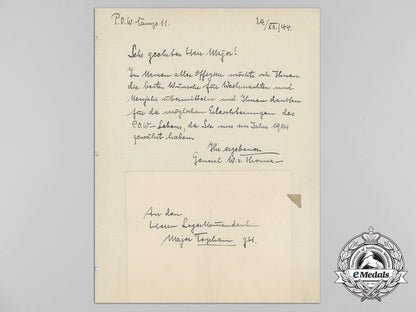 P.O.W.-Camp 11.
24/XII/44.
Sehr geehrter Herr Major!
Im Namen aller Offiziere möchte ich Ihnen
die besten Wünsche für Weihnachten und
Neujahr übermitteln und Ihnen danken
für die möglichen Erleichterungen des
P.O.W-Lebens, die Sie uns im Jahre 1944
gewährt haben.
Ihr ergebener
General W. v. Thoma
An den
Herrn Lagerkommandanten
Major Topham